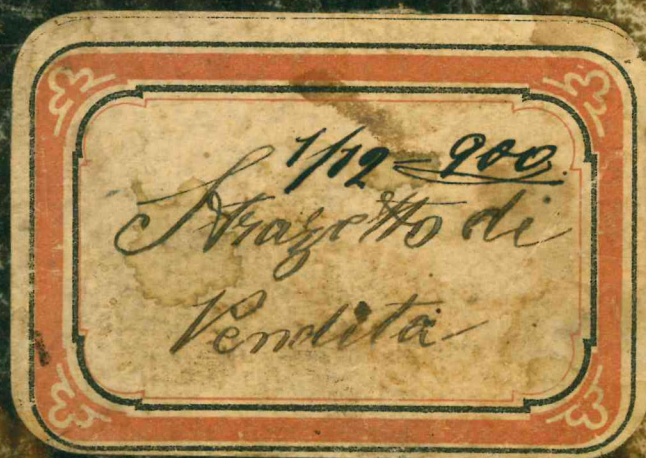 1/12 = 900.
Strazetto di
Vendita